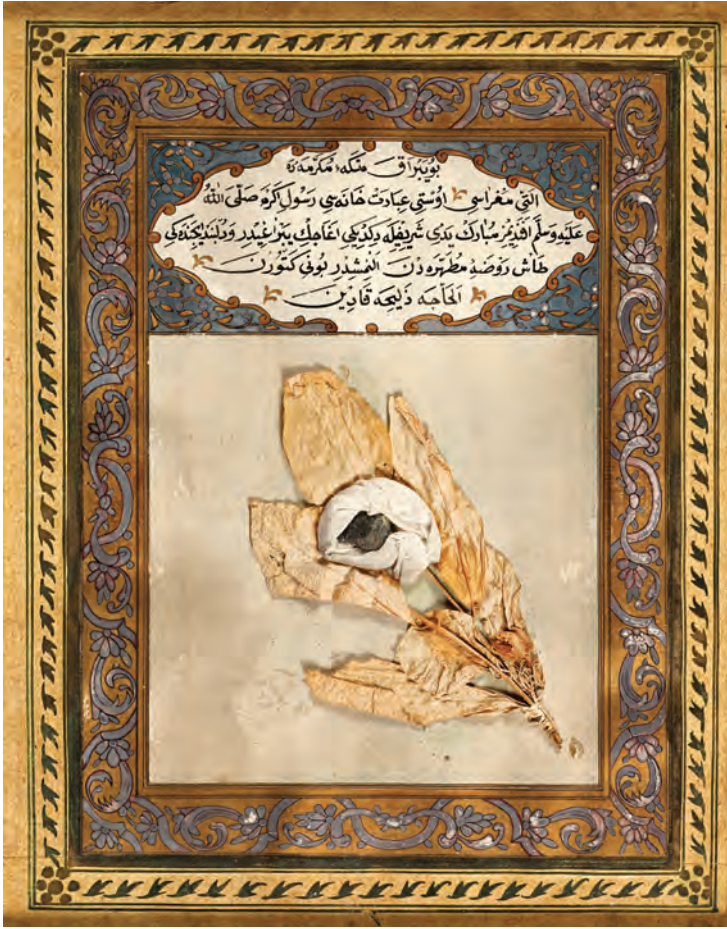 بو يپراق مكهٔ مكرمه ده
التي مغراسى اوستى عبادت خانه سى رسول اكرم صَلَّى اللّٰهُ
عَلَيْهِ وَسَلَّم افنديمز مبارك يدى شريفيله ديكديكى اغاجك يپراغيدر ودلبند ايچنده كى
طاش روضهٔ مطهره دن النمشدر بونى كتورن
الحاجه ذليحه قادين